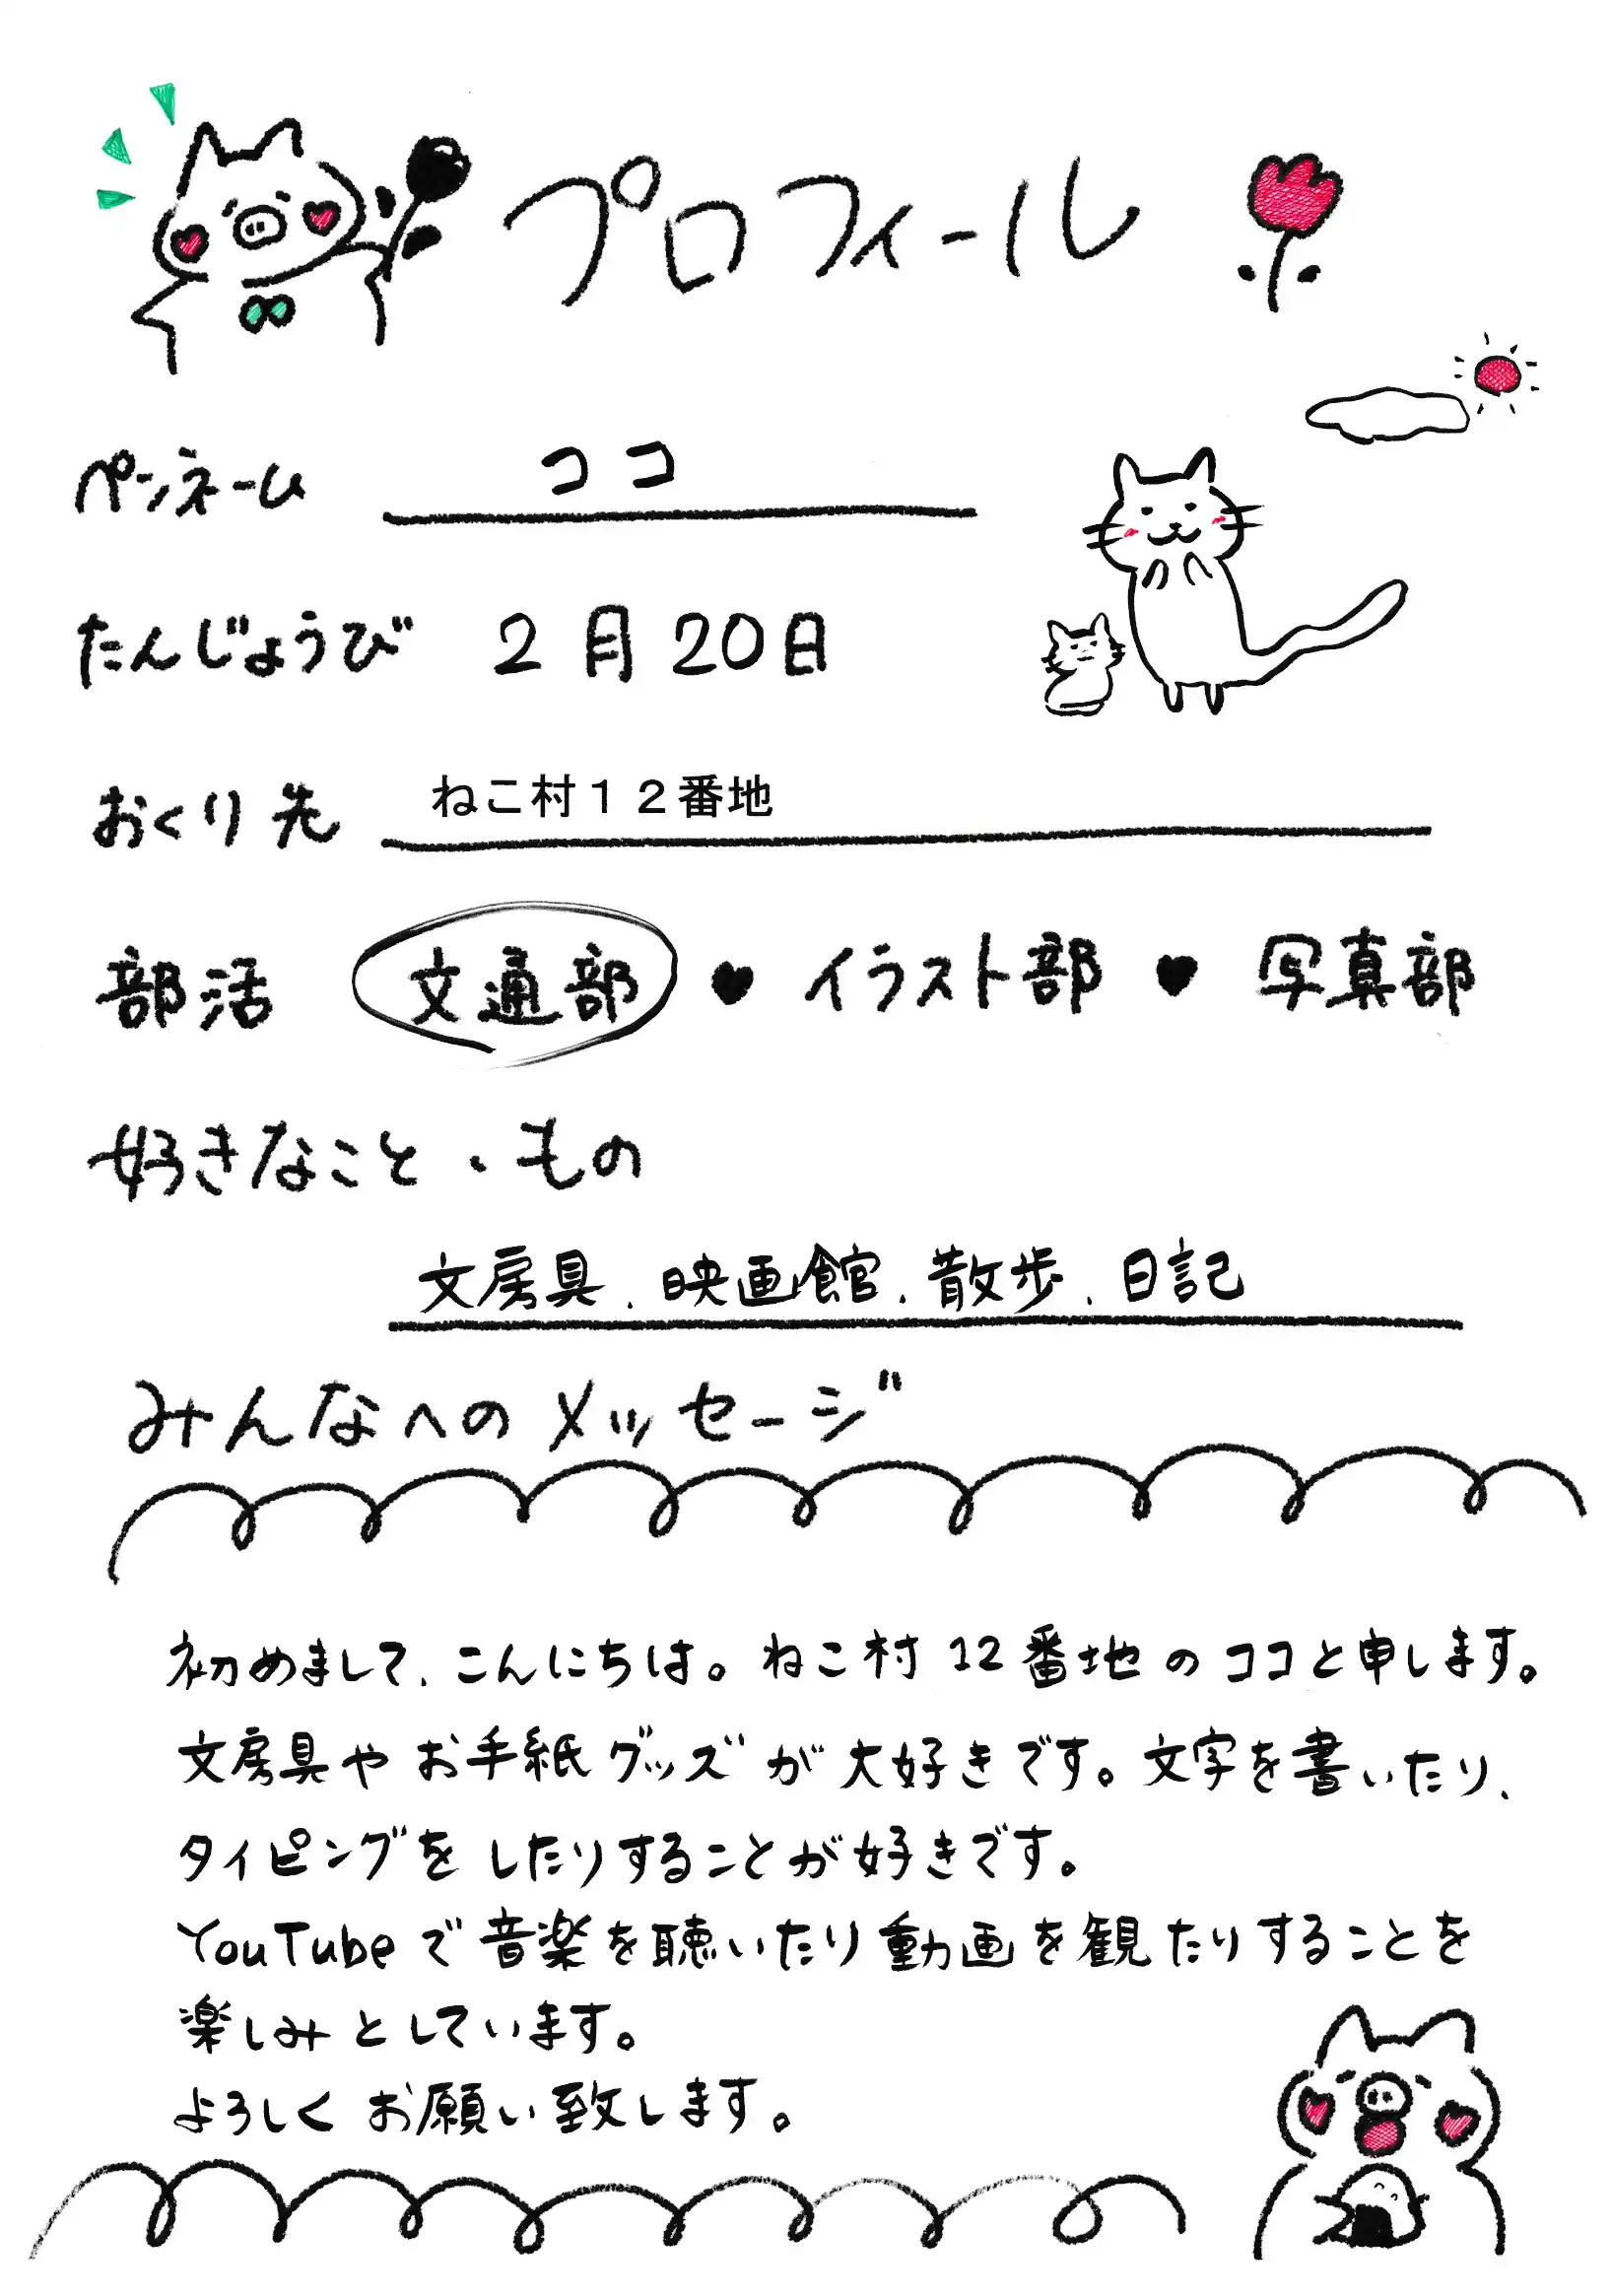 プロフィール
ペンネーム ココ
たんじょうび 2月20日
おくり先 ねこ村１２番地
部活 文通部 ♥ イラスト部 ♥ 写真部
好きなこと・もの
文房具、映画館、散歩、日記
みんなへのメッセージ
初めまして、こんにちは。ねこ村12番地のココと申します。
文房具やお手紙グッズが大好きです。文字を書いたり、
タイピングをしたりすることが好きです。
YouTubeで音楽を聴いたり動画を観たりすることを
楽しみとしています。
よろしくお願い致します。